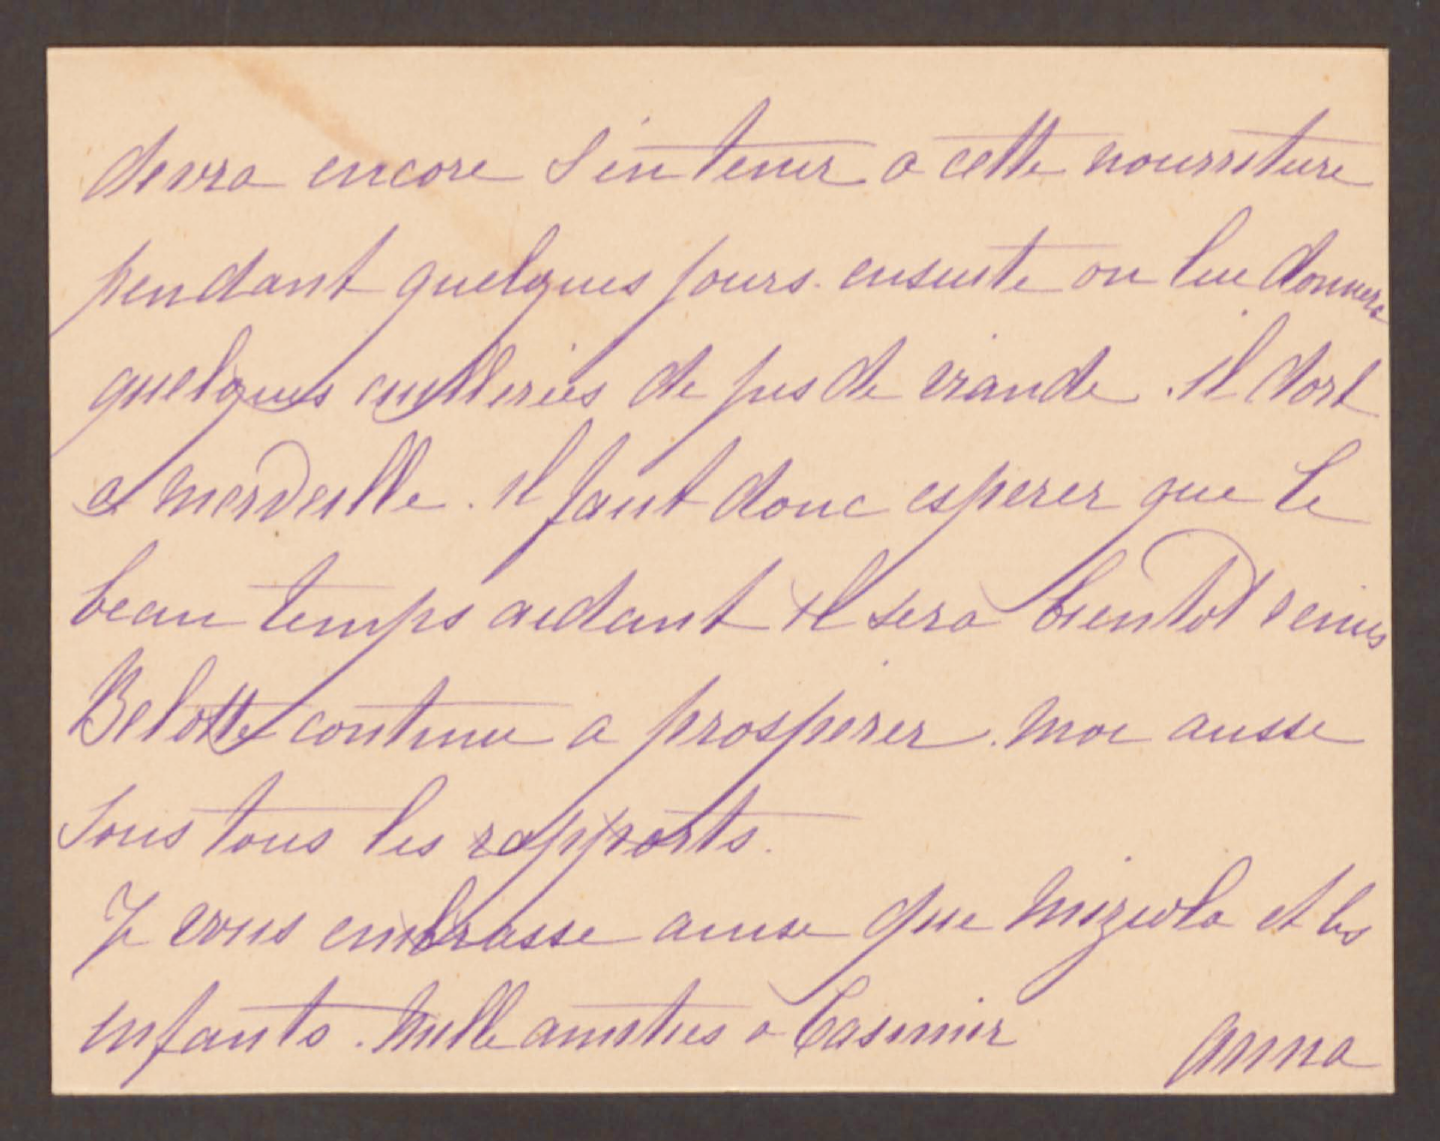 devra encore s'en tenir a cette nourriture
pendant quelques jours. ensuite on lui donnera
quelques cuillerées de jus de viande. il dort
a merveille. il faut donc esperer que le
beau temps aidant il sera bientot
Belotte continue a prosperer. moi aussi
sous tous les rapports.
Je vous embrasse ainsi que et les
enfants. Mille amities a Casimir
Anna